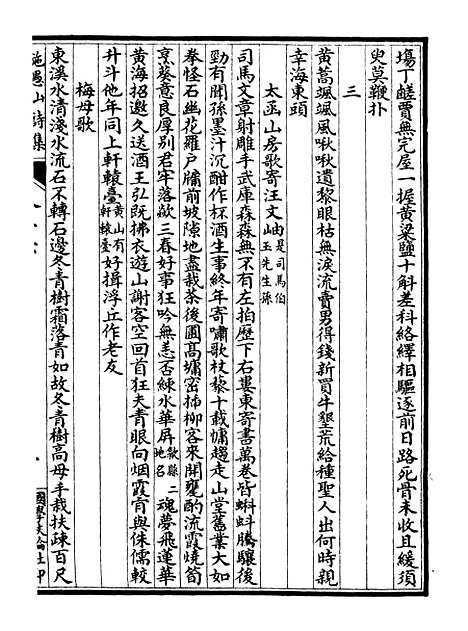 塲丁鹺賈無完屋一握黄粱鹽十斛差科絡繹相驅逐前日路死骨未收且緩須
臾莫鞭扑
三
黄蒿颯颯風啾啾遺黎眼枯無淚流賣男得錢新買牛墾荒給種聖人出何時親
幸海東頭
太函山房歌寄汪文岫是司馬伯玉先生孫
司馬文章射雕手武庫森森無不有左拍歷下右婁東寄書萬卷皆蝌蚪騰驤後
勁有聞孫墨汁沉酣作杯酒生事終年寄嘯歌杖藜十載慵趨走山堂舊業大如
拳怪石幽花羅戶牖前坡隙地盡栽茶後圃高墉密揷柳客來開甕酌流霞燒筍
烹葵意良厚别君牢落歘三春好事狂吟無恙否練水華屏歙縣地名二魂夢飛蓮華
黄海招邀久送酒王弘既拂衣遊山謝客空回首狂夫青眼向烟霞肯與侏儒較
升斗他年同上軒轅臺黄山有軒轅臺好揖浮丘作老友
梅母歌
東溪水清淺水流石不轉石邊冬青樹霜落青如故冬青樹高母手栽扶疎百尺
施愚山詩集